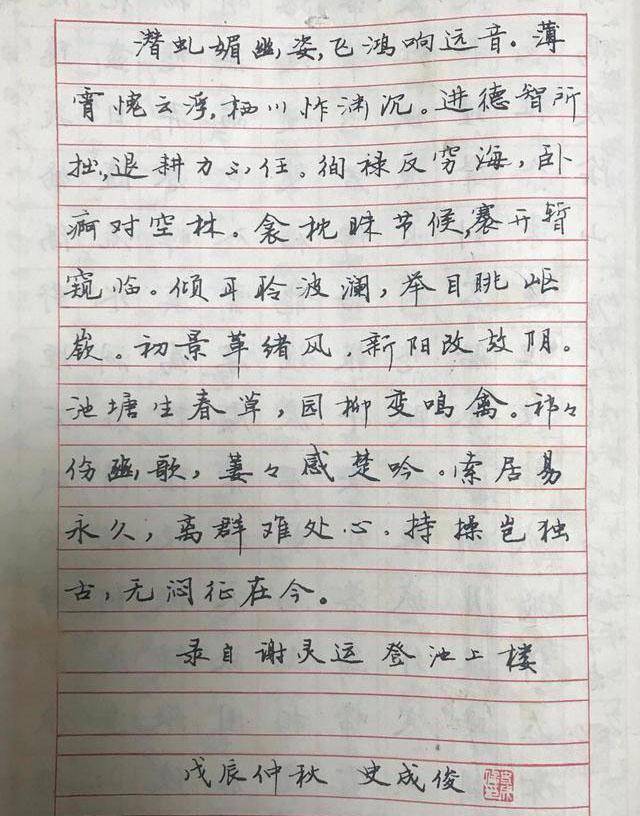 潜虬媚幽姿,飞鸿响远音。薄
霄愧云浮,栖川怍渊沉。进德智所
拙,退耕力不任。徇禄反穷海,卧
疴对空林。衾枕昧节候,褰开暂
窥临。倾耳聆波澜,举目眺岖
嵚。初景革绪风,新阳改故阴。
池塘生春草,园柳变鸣禽。祁々
伤豳歌,萋々感楚吟。索居易
永久,离群难处心.持操岂独
古,无闷征在今。
录自谢灵运登池上楼
戊辰仲秋 史成俊